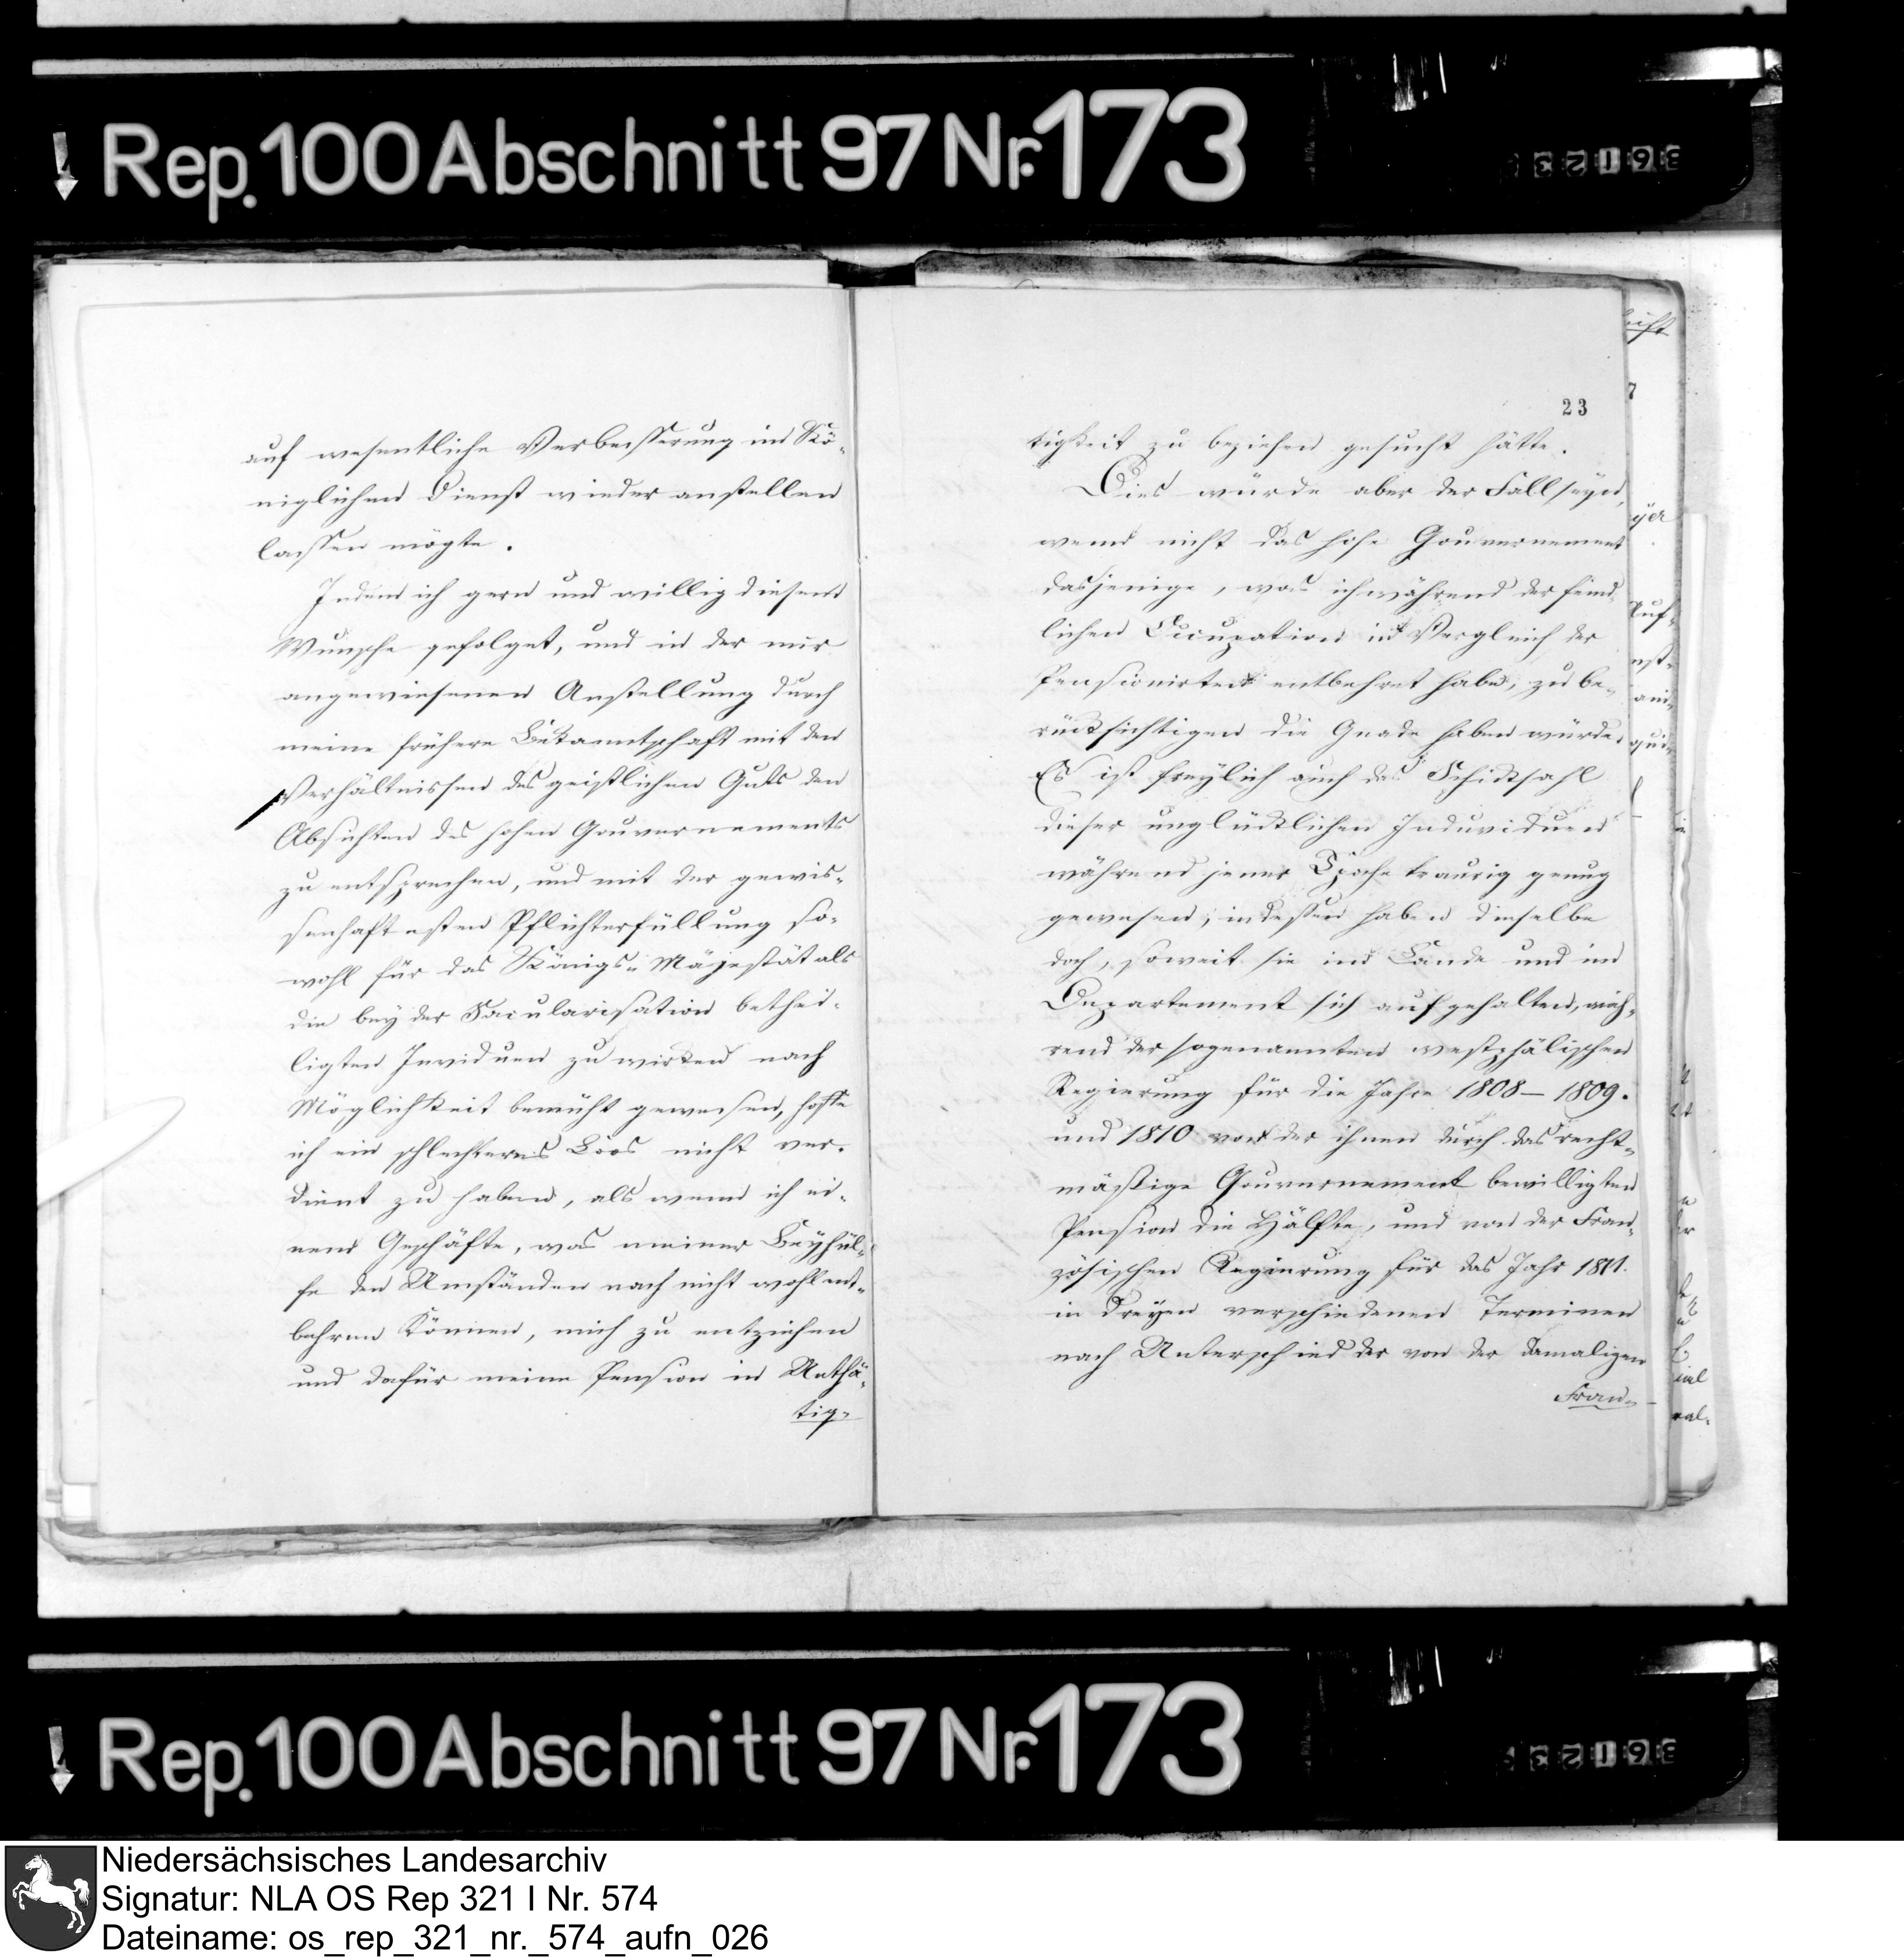 Rep. 100 Abschnitt 97 Nr. 173
auf wesentliche Verbesserung im Kö-
niglichen Dienst wieder anstellen
lassen mögte.
Indem ich gern und willig diesem
Wunsche gefolget, und in der mir
angewiesenen Anstellung durch
meine frühere Bekanntschaft mit den
Verhältnissen des geistlichen Guts den
Absichten des hohen Gouvernements
zu entsprechen, und mit der gewis-
senhaftesten Pflichterfüllung so-
wohl für das Königs- Majestät als
die bey der Sacularisation bethei-
ligten Inviduen zu wirken nach
Möglichkeit bemüht gewesen, hoffe
ich ein schlechteres Loos nicht ver-
dient zu haben, als wenn ich ei-
nem Geschäfte, was meiner Beyhül-
fe den Umständen nach nicht wohl ent-
behren können, mich zu entziehen
und dafür meine Pension in Unthä-
tig-
23
tigkeit zu beziehen gesucht hätte.
Dies würde aber der Fall seyn,
wenn nicht das hohe Gouvernement
dasjenige, was ich während der feind-
lichen Occupation in Vergleich der
Pensionirten entbehret habe, zu be-
rücksichtigen die Gnade haben würde.
Es ist freylich auch das Schicksahl
dieser unglücklichen Induviduen
während jener Epoche traurig genug
gewesen; indessen haben dieselbe
doch, soweit sie im Lande und im
Departement sich aufgehalten, wäh-
rend der sogenannten westphälischen
Regierung für die Jahre 1808 – 1809.
und 1810 von der ihnen durch das recht-
mässige Gouvernement bewilligten
Pension die Hälfte, und von der Fran-
zösischen Regierung für das Jahr 1811.
in dreyen verschiedenen Terminen
nach Unterschied der von der damaligen
Fran-
Rep. 100 Abschnitt 97 Nr. 173
Niedersächsisches Landesarchiv
Signatur: NLA OS Rep 321 I Nr. 574
Dateiname: os_rep_321_nr._574_aufn_026